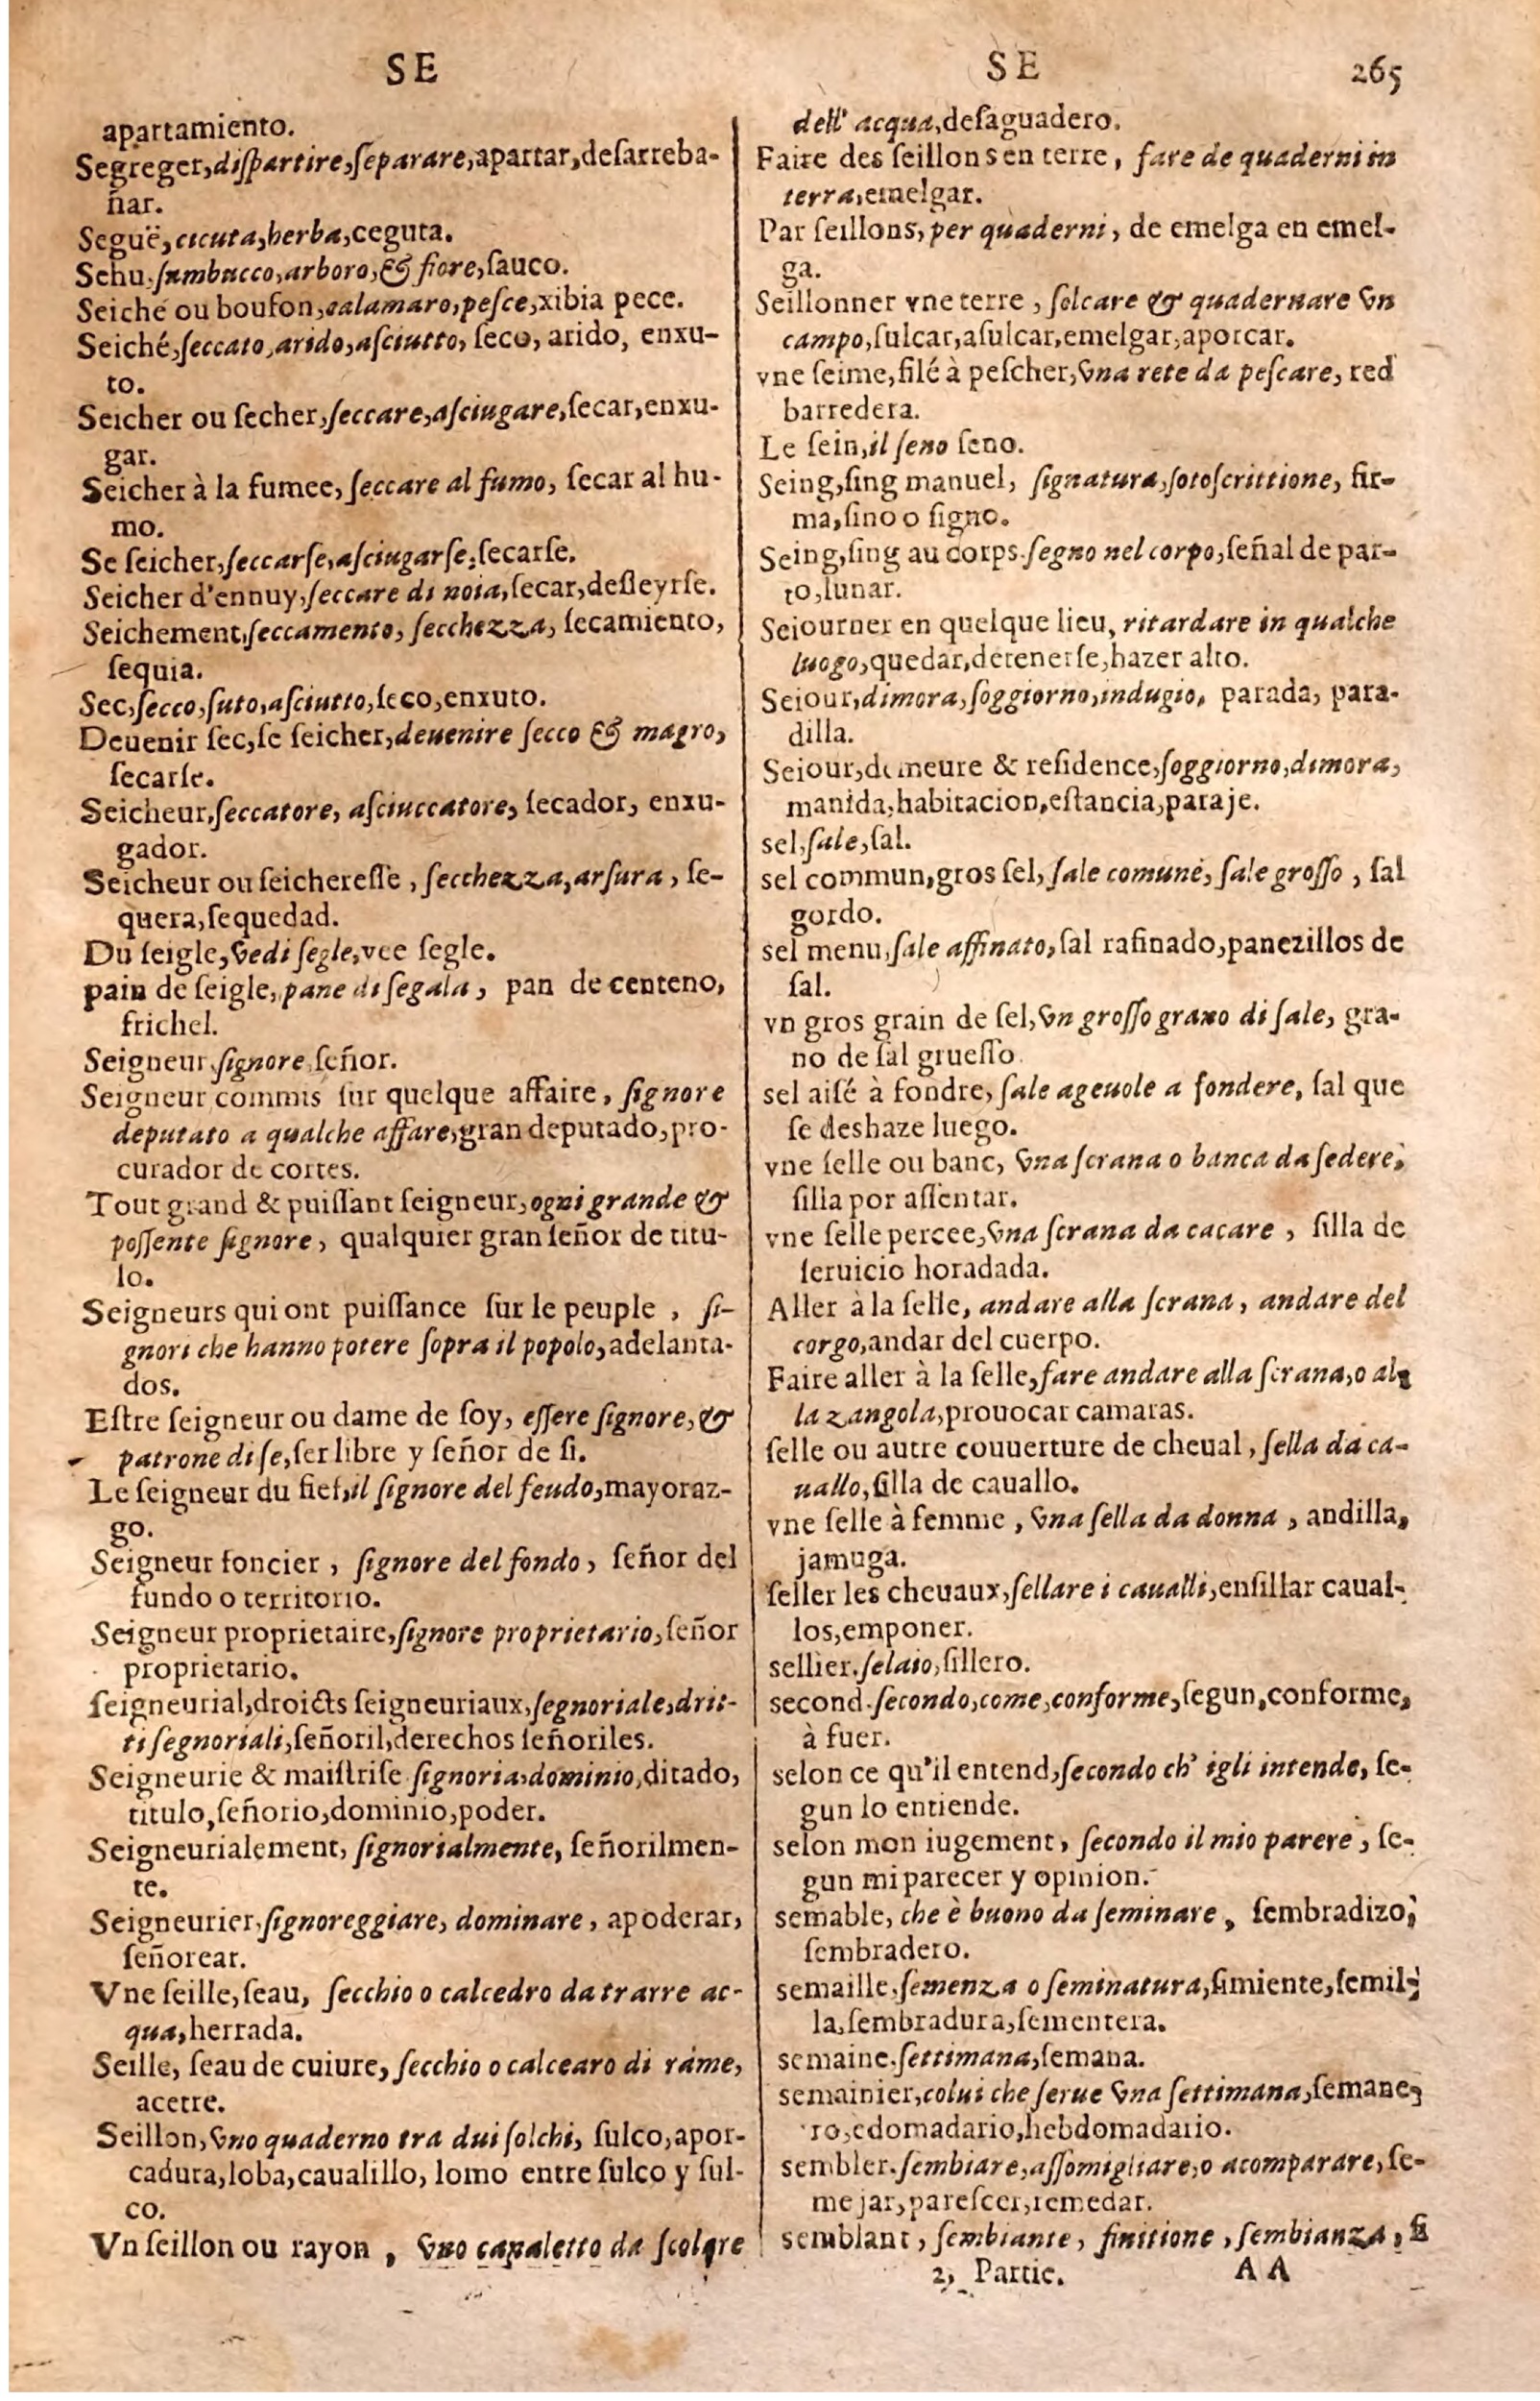 SE
apartamiento.
Segreger, diſpartire, ſeparare, apartar, deſarreba-
ñar.
Seguë, cicuta, herba, ceguta.
Sehu, ſambucco, arboro, & fiore, ſauco.
Seiche ou boufon, calamaro, peſce, xibia pece.
Seiché, ſeccato, arido, aſciutto, ſeco, arido, enxu-
to.
Seicher ou ſecher, ſeccare, aſciugare, ſecar, enxu-
gar.
Seicher à la fumee, ſeccare al fumo, ſecar al hu-
mo.
Se ſeicher, ſeccarſe, aſciugarſe, ſecarſe.
Seicher d'ennuy, ſeccare di noia, ſecar, deſleyrſe.
Seichement, ſeccamento, ſecchezza, ſecamiento,
ſequia.
Sec, ſecco, ſuto, aſciutto, ſeco, enxuto.
Deuenir ſec, ſe ſeicher, deuenire ſecco & magro,
ſecarſe.
Seicheur, ſeccatore, aſciuccatore, ſecador, enxu-
gador.
Seicheur ou ſeichereſſe, ſecchezza, arſura, ſe-
quera, ſequedad.
Du ſeigle, vedi ſegle, vee ſegle.
pain de ſeigle, pane di ſegala, pan de centeno,
frichel.
Seigneur, ſignore, ſeñor.
Seigneur commis ſur quelque affaire, ſignore
deputato a qualche affare, gran deputado, pro-
curador de cortes.
Tout grand & puiſſant ſeigneur, ogni grande &
poſſente ſignore, qualquier gran ſeñor de titu-
lo.
Seigneurs qui ont puiſſance ſur le peuple, ſi-
gnori che hanno potere ſopra il popolo, adelanta-
dos.
Eſtre ſeigneur ou dame de ſoy, eſſere ſignore, &
patrone di ſe, ſer libre y ſeñor de ſi.
Le ſeigneur du fief, il ſignore del feudo, mayoraz-
go.
Seigneur foncier, ſignore del fondo, ſeñor del
fundo o territorio.
Seigneur proprietaire, ſignore proprietario, ſeñor
proprietario.
ſeigneurial, droicts ſeigneuriaux, ſegnoriale, drit-
ti ſegnoriali, ſeñoril, derechos ſeñoriles.
Seigneurie & maiſtriſe ſignoria, dominio, ditado,
titulo, ſeñorio, dominio, poder.
Seigneurialement, ſignorialmente, ſeñorilmen-
te.
Seigneurier, ſignoreggiare, dominare, apoderar,
ſeñorear.
Vne ſeille, ſeau, ſecchio o calcedro da trarre ac-
qua, herrada.
Seille, ſeau de cuiure, ſecchio o calcearo di rame,
acetre.
Seillon, vno quaderno tra dui ſolchi, ſulco, apor-
cadura, loba, caualillo, lomo entre ſulco y ſul-
co.
Vn ſeillon ou rayon, vno canaletto da ſcolare
SE 265
dell' acqua, deſaguadero.
Faire des ſeillons en terre, fare de quaderni in
terra, emelgar.
Par ſeillons, per quaderni, de emelga en emel-
ga.
Seillonner vne terre, ſolcare & quadernare vn
campo, ſulcar, aſulcar, emelgar, aporcar.
vne ſeime, filé à peſcher, vna rete da peſcare, red
barredera.
Le ſein, il ſeno ſeno.
Seing, ſing manuel, ſignatura, ſotoſcrittione, fir-
ma, ſino o ſigno.
Seing, ſing au corps. ſegno nel corpo, ſeñal de par-
to, lunar.
Seiourner en quelque lieu, ritardare in qualche
luogo, quedar, detenerſe, hazer alto.
Seiour, dimora, ſoggiorno, indugio, parada, para-
dilla.
Seiour, demeure & reſidence, ſoggiorno, dimora,
manida, habitacion, eſtancia, paraje.
sel, ſale, ſal.
sel commun, gros ſel, ſale comune, ſale groſſo, ſal
gordo.
sel menu, ſale affinato, ſal rafinado, panezillos de
ſal.
vn gros grain de ſel, vn groſſo grano di ſale, gra-
no de ſal grueſſo
sel aiſé à fondre, ſale ageuole a fondere, ſal que
ſe deshaze luego.
vne ſelle ou banc, vna ſcrana o banca da ſedere,
ſilla por aſſentar.
vne ſelle percee, vna ſcrana da cacare, ſilla de
ſeruicio horadada.
Aller à la ſelle, andare alla ſcrana, andare del
corgo, andar del cuerpo.
Faire aller à la ſelle, fare andare alla ſcrana, o al-
la zangola, prouocar camaras.
ſelle ou autre couuerture de cheual, ſella da ca-
uallo, ſilla de cauallo.
vne ſelle à femme, vna ſella da donna, andilla,
jamuga.
ſeller les cheuaux, ſellare i caualli, enſillar caual-
los, emponer.
sellier. ſelaio, ſillero.
second. ſecondo, come, conforme, ſegun, conforme,
à fuer.
selon ce qu'il entend, ſecondo ch' igli intende, ſe-
gun lo entiende.
selon mon iugement, ſecondo il mio parere, ſe-
gun mi parecer y opinion.
semable, che è buono da ſeminare, ſembradizo,
ſembradero.
semaille, ſemenza o ſeminatura, ſimiente, ſemil-
la, ſembradura, ſementera.
semaine, ſettimana, ſemana.
semainier, colui che ſerue vna ſettimana, ſemane-
ro, edomadario, hebdomadario.
sembler. ſembiare, aſſomigliare, o acomparare, ſe-
mejar, pareſcer, remedar.
semblant, ſembiante, finitione, ſembianza, ſi
2, Partie. AA